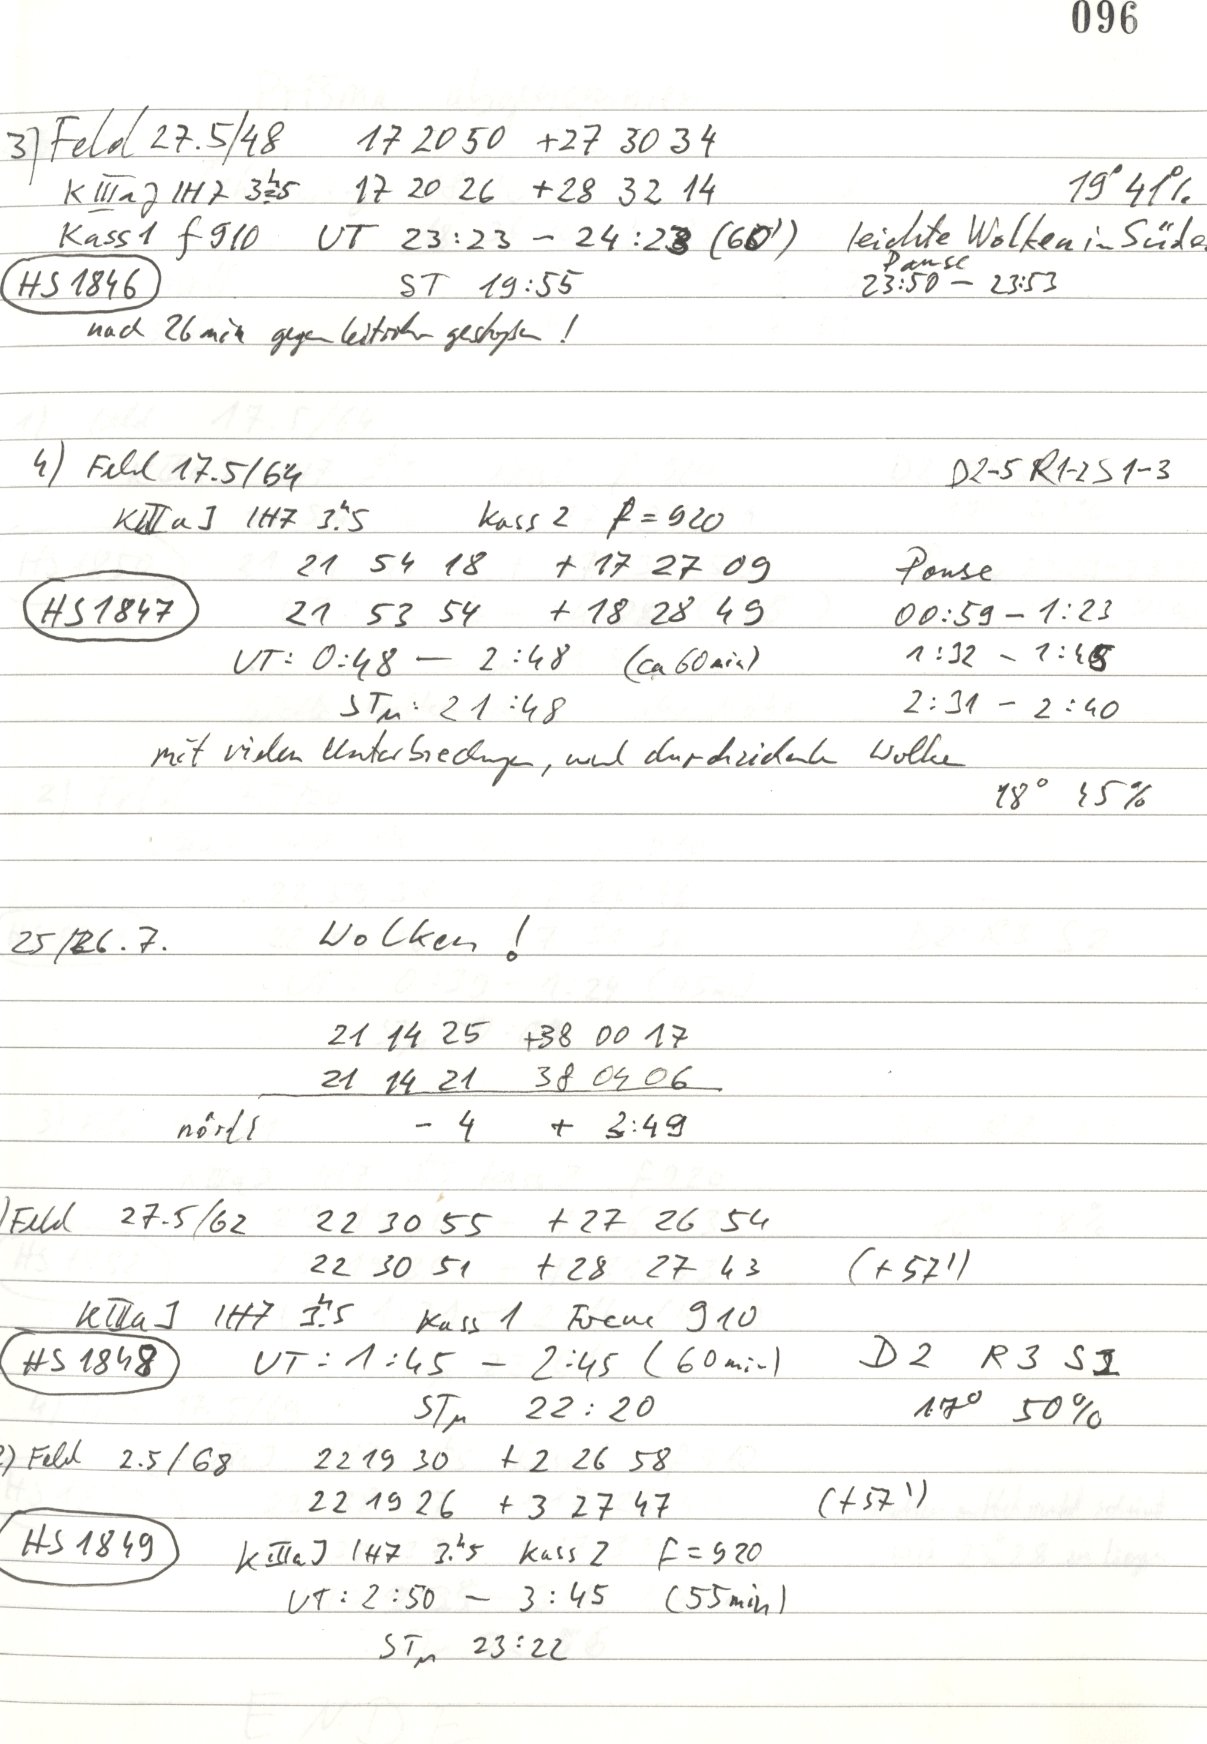 096
3) Feld 27.5/48 17 20 50 +27 30 34
KIIIaJ IH7 3h.5 17 20 26 +28 32 14 19° 41%
Kass 1 f 910 UT 23:23 – 24:23 (60') leichte Wolken in Süden
Pause
HS 1846 ST 19:55 23:50 – 23:53
nach 26 min gegen Leitrohr gestoßen !
4) Feld 17.5/64 D2-5 R1-2 S1-3
KIIIaJ IH7 3h.5 Kass 2 f = 920
21 54 18 + 17 27 09 Pause
HS 1847 21 53 54 + 18 28 49 00:59 – 1:23
UT: 0:48 – 2:48 (ca 60 min) 1:32 – 1:45
STM: 21:48 2:31 – 2:40
mit vielen Unterbrechungen, und durchziehende Wolken
18° 45%
25/26.7. Wolken !
21 14 25 +38 00 17
21 14 21 38 04 06
nördl - 4 + 3:49
) Feld 27.5/62 22 30 55 + 27 26 54
22 30 51 + 28 27 43 (+57')
KIIIaJ IH7 3h.5 Kass 1 Focus 910
HS 1848 UT: 1:45 – 2:45 (60 min) D2 R3 S2
STM 22:20 17° 50%
2) Feld 2.5/68 22 19 30 + 2 26 58
22 19 26 + 3 27 47 (+57')
HS 1849 KIIIaJ IH7 3.h5 Kass 2 f = 920
UT: 2:50 – 3:45 (55 min)
STM 23:22